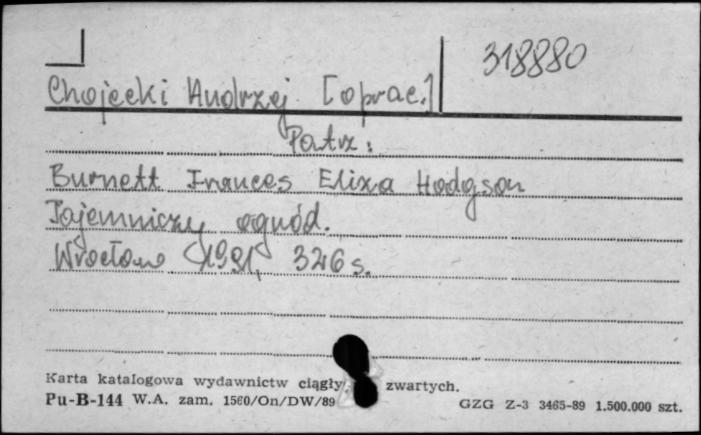 318880
Chojecki Andrzej [oprac.]
Patrz:
Burnett Frances Eliza Hodgson
Tajemniczy ogród.
Wrocław 1991, 326 s.
Karta katalogowa wydawnictw ciągły zwartych.
Pu-B-144 W.A. zam. 1560/On/DW/89
GZG Z-3 3465-89 1.500.000 szt.